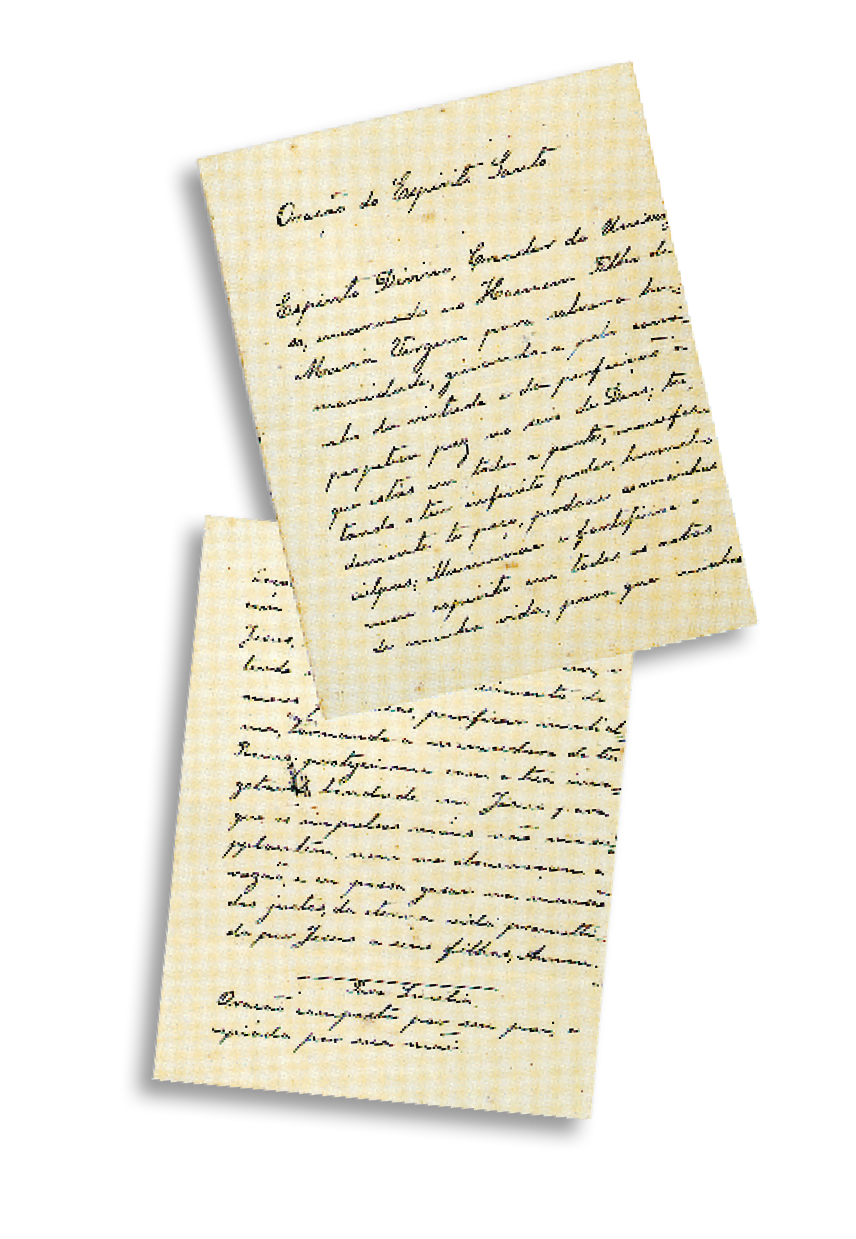 Oração do Espirito Santo
Espirito Divino, Creador do Univer-
so, encarnado no Homem Filho de
Maria Virgem para salvar a hu-
manidade, guiando-a pelo cami-
nho da virtude e da perfeição à
perpetua paz no seio de Deus; tu,
que estás em toda a parte, manifes-
tando o teu infinito poder, humilde-
mente te peço, perdoae as minhas
culpas; illuminae e fortificae o
meu espirito em todos os actos
de minha vida, para que minha
Jesus,
tendo
cimento de
meus purificar
me, tornando-a merecedora de ter
protegei-me com a tua
bondade em Jesus para
que os impulsos maus não me
nem me obscureçam a
razão, e eu possa gosar na mansão
dos justos, da eterna vida prometti-
da por Jesus a seus filhos, Amen.
Para
Oração composta por seu pai, e
copiada por sua mãe.